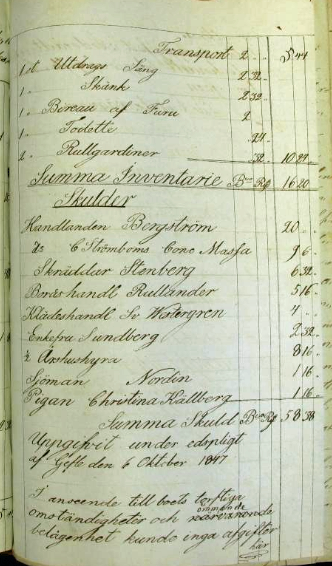 Transport 2 " 5 44
1 st Utdrags Säng 2 32
1 " Skänk 2 32
1 " Bureau af Furu 2
1 " Toilette " 24
2 " Rullgardiner " 32 10 24
Summa Inventarie Bco Rd 16 20
Skulder
Handlanden Bergström 20
Do C Strömboms Conc Massa 9 6
Skräddar Stenberg 6 32
Boråshandl Rullander 5 16
Klädeshandl Westergren 4
Enkefru Lundberg 2 32
8 16
Sjöman Nordin 1 16
Pigan Christina Hallberg 1 16
Summa Skuld Bco Rd 58 38
Uppgifvit under edspligt
af Gefle den 6 Oktober 1847
I anseende till boets torftiga
omständigheter och
belägenhet kunde inga afgifter